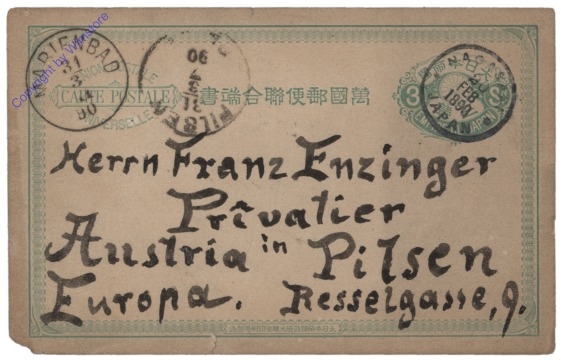 Copyright by Winstore
MARIENBAD
31
3
90
UNION POSTALE
CARTE POSTALE
UNIVERSELLE
PILSEN
31
3
90
萬國郵便聯合端書
3 Sn
JAPAN
FEB
1890
Herrn Franz Enzinger
Privatier
Austria in Pilsen
Europa. Resselgasse, 9.